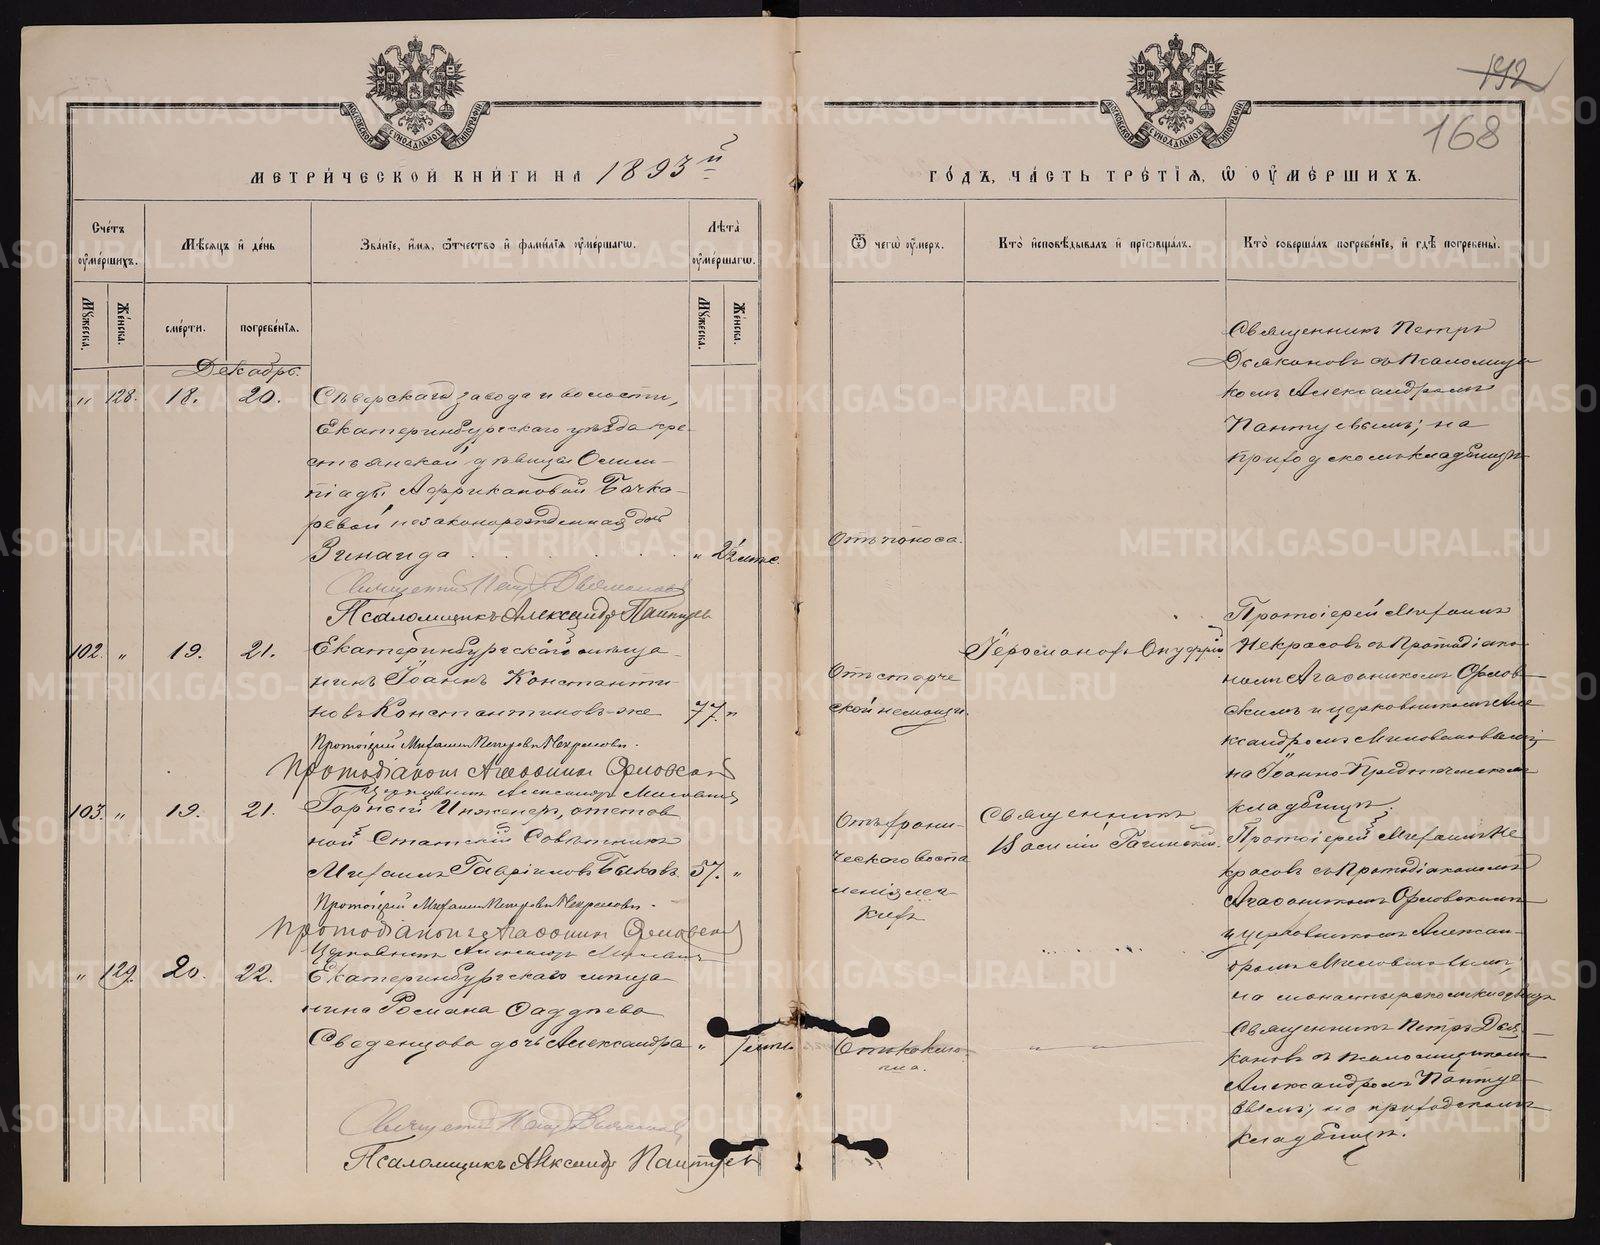 192
168
МЕТРИ́ЧЕСКОЙ КНИ́ГИ НА 1893й
ГО́ДЪ, ЧА́СТЬ ТРЕ́ТІЯ, Ѡ ОУ҆МЕ́РШИХЪ.
Сче́тъ оу҆ме́ршихъ.
Мѣ́сяцъ и҆ де́нь
Зва́ніе, и҆́мя, ѻ҆́тчество и҆ фами́лія оу҆ме́ршагѡ.
Лѣ́та оу҆ме́ршагѡ.
Ѿ чегѡ̀ оу҆́меръ.
Кто̀ и҆сповѣ́дывалъ и҆ прїѡбща́лъ.
Кто̀ соверша́лъ погребе́ніе, и҆ гдѣ̀ погребены̀.
Мꙋ́жеска.
Же́нска.
сме́рти.
погребе́нїѧ.
Мꙋ́жеска.
Же́нска.
Декабрь.
„ 128. 18. 20.
Сѣверскаго завода и волости,
Екатеринбургскаго уѣзда кре-
стьянской дѣвицы Олим-
піады Африкановой Бочка-
ревой незаконорожденная дочь
Зинаида „ 2½ мѣс.
Отъ поноса.
Священникъ Петръ
Дьяконовъ съ псаломщи-
комъ Александромъ
Пантуевымъ; на
приходскомъ кладбищѣ
Священникъ Петръ Дьяконовъ
Псаломщикъ Александръ Пантуевъ
102. „ 19. 21.
Екатеринбургскій мѣща-
нинъ Іоаннъ Константи-
новъ Константиновъ-же 77. „
Отъ старче
ской немощи.
Іеромонахъ Онуфрій
Протоіерей Михаилъ
Некрасовъ съ Протодіако-
номъ Агафоникомъ Орлов-
скимъ и церковникомъ Але
ксандромъ Миловановымъ
на Іоанно-Предтеченскомъ
кладбищѣ.
Протоіерей Михаилъ Петровъ Некрасовъ.
Протодіаконъ Агафоникъ Орловскій
Церковникъ Александръ Миловановъ
103. „ 19. 21.
Горный Инженеръ, отстав
ной Статскій Совѣтникъ
Михаилъ Гавріиловъ Быковъ 57. „
Отъ хрони-
ческаго воспа
ленія лег
кихъ
Священникъ
Василій Гагинскій.
Протоіерей Михаилъ Не
красовъ съ Протодіакономъ
Агафоникомъ Орловскимъ
и церковникомъ Алексан-
дромъ Миловановымъ;
на монастырскомъ кладбищѣ
Протоіерей Михаилъ Петровъ Некрасовъ.
Протодіаконъ Агафоникъ Орловскій
Церковникъ Александръ Миловановъ
„ 129. 20. 22.
Екатеринбургскаго мѣща-
нина Романа Фаддѣева
Сведенцова дочь Александра „
„ „
Священникъ Петръ Дья-
коновъ съ псаломщикомъ
Александромъ Пантуе-
вымъ; на приходскомъ
кладбищѣ.
Священникъ Петръ Дьяконовъ
Псаломщикъ Александръ Пантуевъ
METRIKI.GASO-URAL.RU